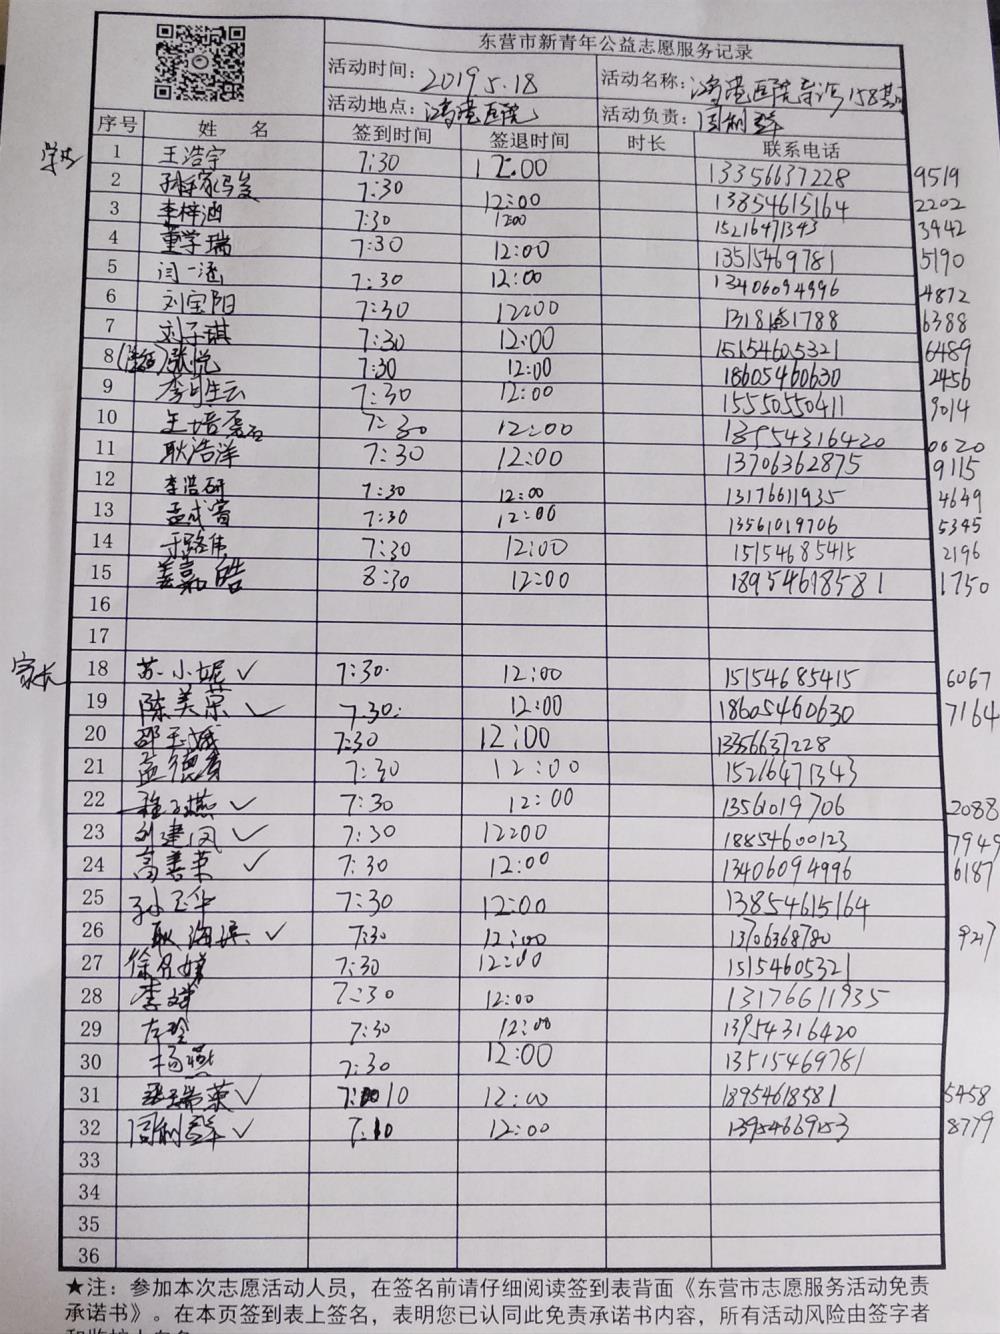 东营市新青年公益志愿服务记录
活动时间: 2019.5.18 活动名称: 鸿港医院导诊158期
活动地点: 鸿港医院 活动负责: 周利群
序号 姓 名 签到时间 签退时间 时长 联系电话
学生 1 王浩宇 7:30 12:00 13356637228 9519
2 7:30 12:00 13854615164 2202
3 李梓涵 7:30 12:00 15216471343 3942
4 董学瑞 7:30 12:00 13515469781 5190
5 闫一涵 7:30 12:00 13406094996 4872
6 刘宝阳 7:30 12:00 6388
7 刘子琪 7:30 12:00 15154605321 6489
8 张悦 7:30 12:00 18605460630 2456
9 7:30 12:00 15550550411 9014
10 王培磊 7:30 12:00 13954316420 0620
11 耿浩洋 7:30 12:00 13706362875 9115
12 李浩研 7:30 12:00 13176611935 4649
13 孟成睿 7:30 12:00 13561019706 5345
14 于路伟 7:30 12:00 15154685415 2196
15 姜嘉皓 8:30 12:00 18954618581 1750
16
17
家长 18 苏小妮 ✓ 7:30 12:00 15154685415 6067
19 陈美荣 ✓ 7:30 12:00 18605460630 7164
20 邵玉娥 7:30 12:00 13356637228
21 孟德 7:30 12:00 15216471343
22 程玉燕 ✓ 7:30 12:00 13561019706 2088
23 刘建凤 ✓ 7:30 12:00 18854600123 7949
24 高善荣 ✓ 7:30 12:00 13406094996 6187
25 孙玉华 7:30 12:00 13854615164
26 耿海滨 ✓ 7:30 12:00 13706368780 9217
27 徐 7:30 12:00 15154605321
28 李斌 7:30 12:00 13176611935
29 左玲 7:30 12:00 13954316420
30 杨燕 7:30 12:00 13515469781
31 瑞荣 ✓ 7:10 12:00 18954618581 5458
32 周利群 ✓ 7:10 12:00 13954669153 8779
33
34
35
36
★注: 参加本次志愿活动人员，在签名前请仔细阅读签到表背面《东营市志愿服务活动免责
承诺书》。在本页签到表上签名，表明您已认同此免责承诺书内容，所有活动风险由签字者